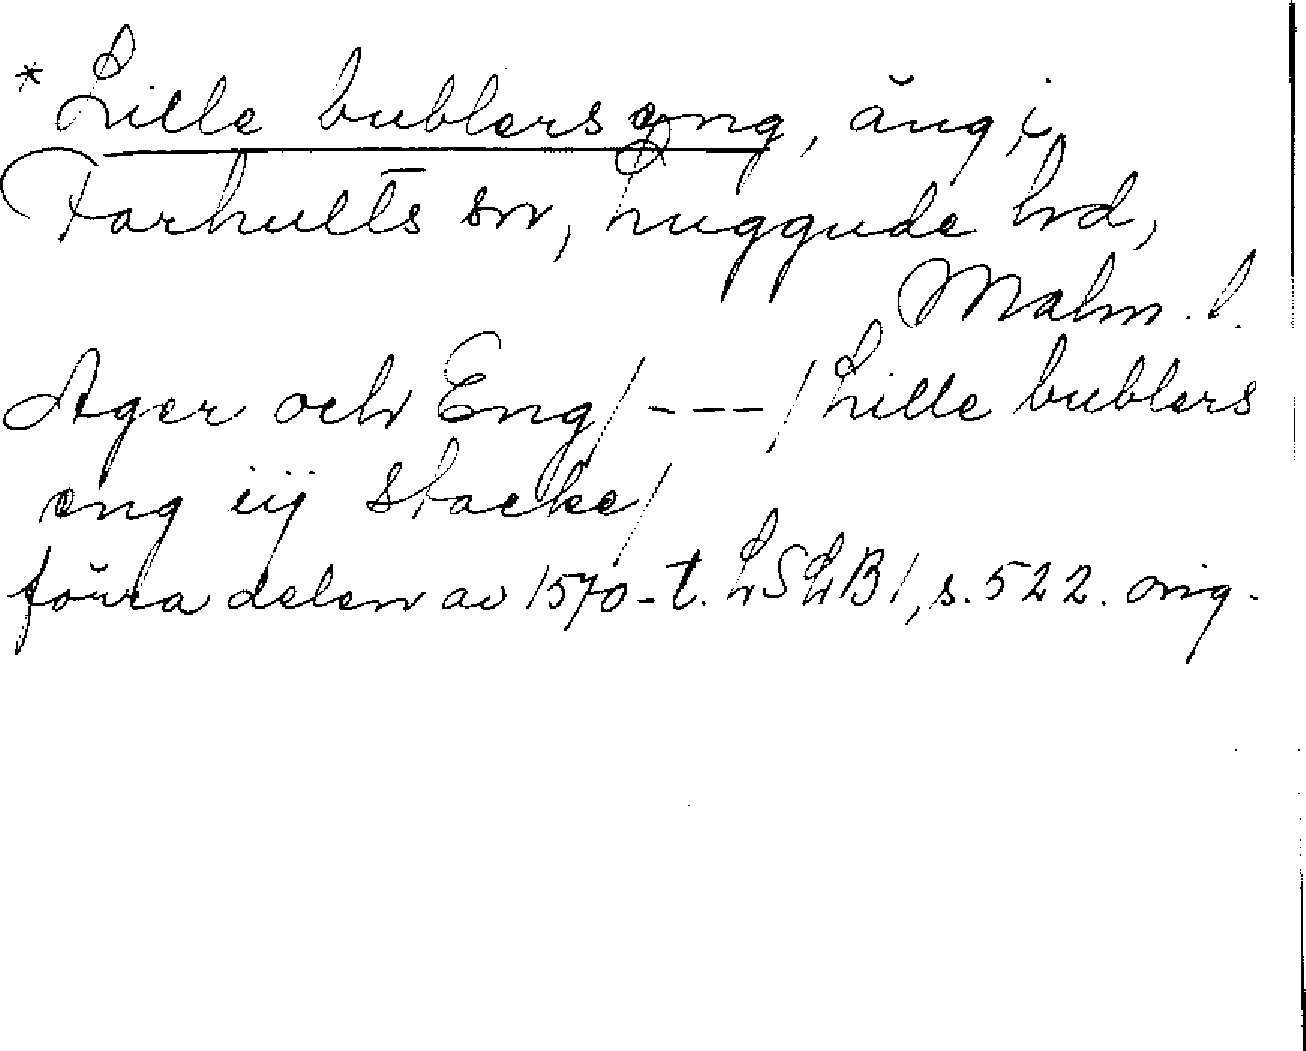 * Lille bublers eng, äng i
Farhults sn, Luggude hd,
Malm. l.
Ager och Eng / - - - / Lille bublers
eng iij stacke /
förra delen av 1570-t. LSLB 1, s. 522. orig.